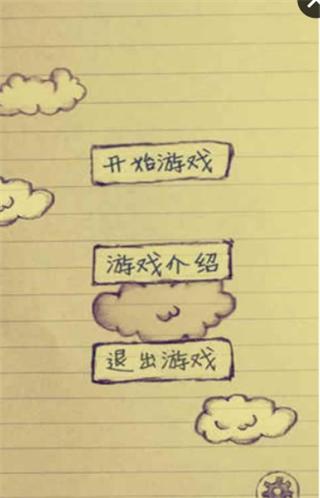 开始游戏
游戏介绍
退出游戏